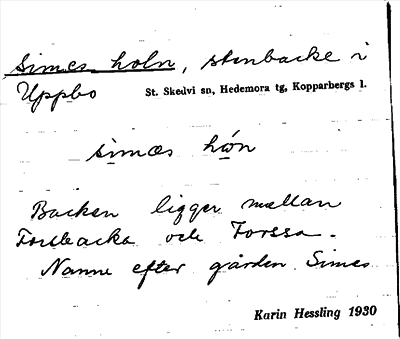 Simes holn, stenbacke i
Uppbo St. Skedvi sn, Hedemora tg, Kopparbergs l.
simæs hɷn
Backen ligger mellan
Forsbacka och Forssa.
Namne efter gården Simes
Karin Hessling 1930